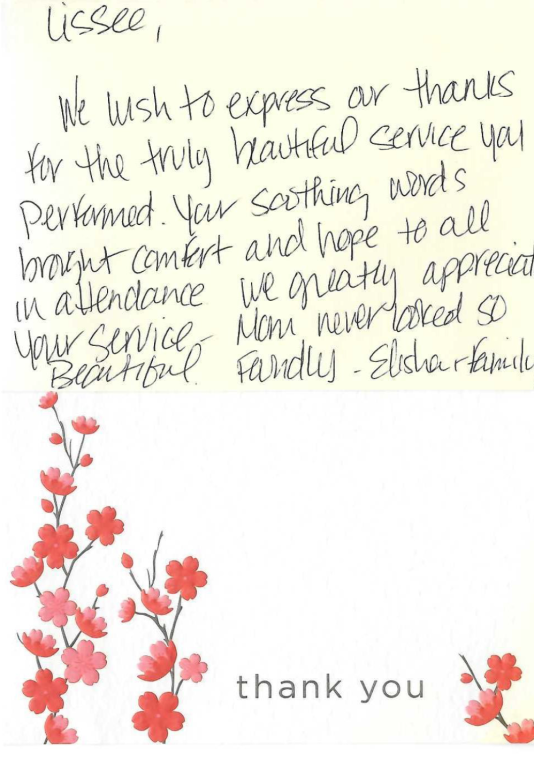 Lissee,
We wish to express our thanks
for the truly beautiful service you
performed. Your soothing words
brought comfort and hope to all
in attendance We greatly appreciat
your service - Mom never looked so
Beautiful. Fondly - Elisha + family
thank you